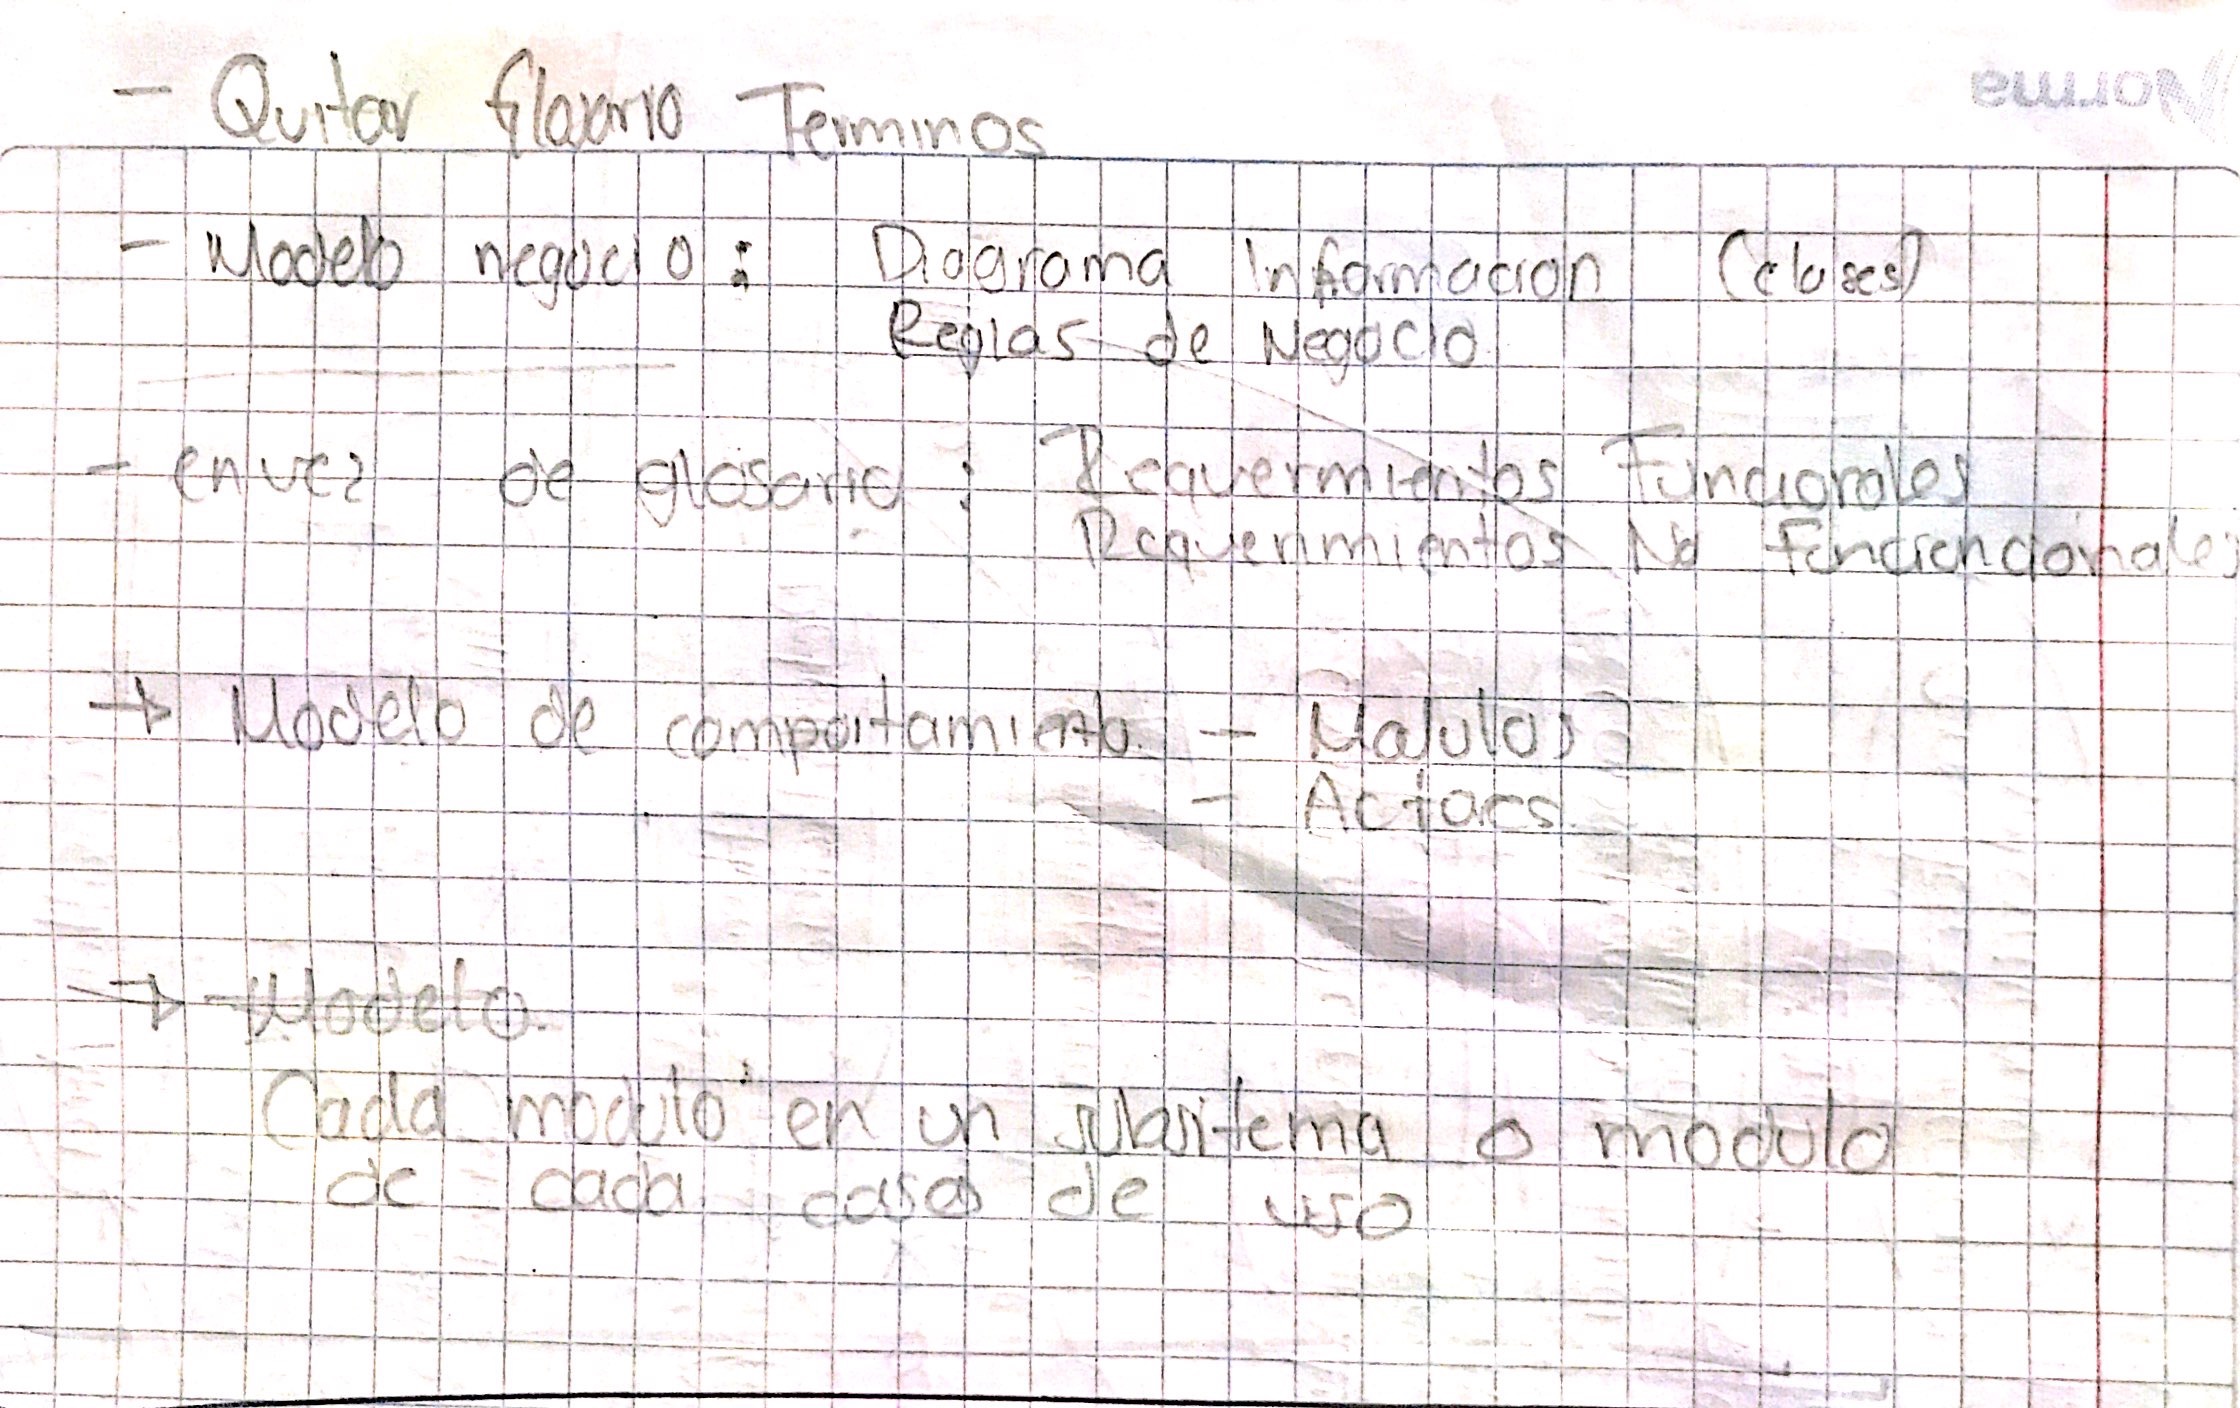 - Quitar Glosario Terminos
- Modelo negocio : Diagrama Informacion (clases)
Reglas de Negocio
- envez de glosario : Requermientos Funcionales
Requerimientos No Funciencionales
→ Modelo de comportamiento - Modulos
- Actores
→ Modelo.
Cada modulo en un subsitema o modulo
de cada casos de uso
Norma